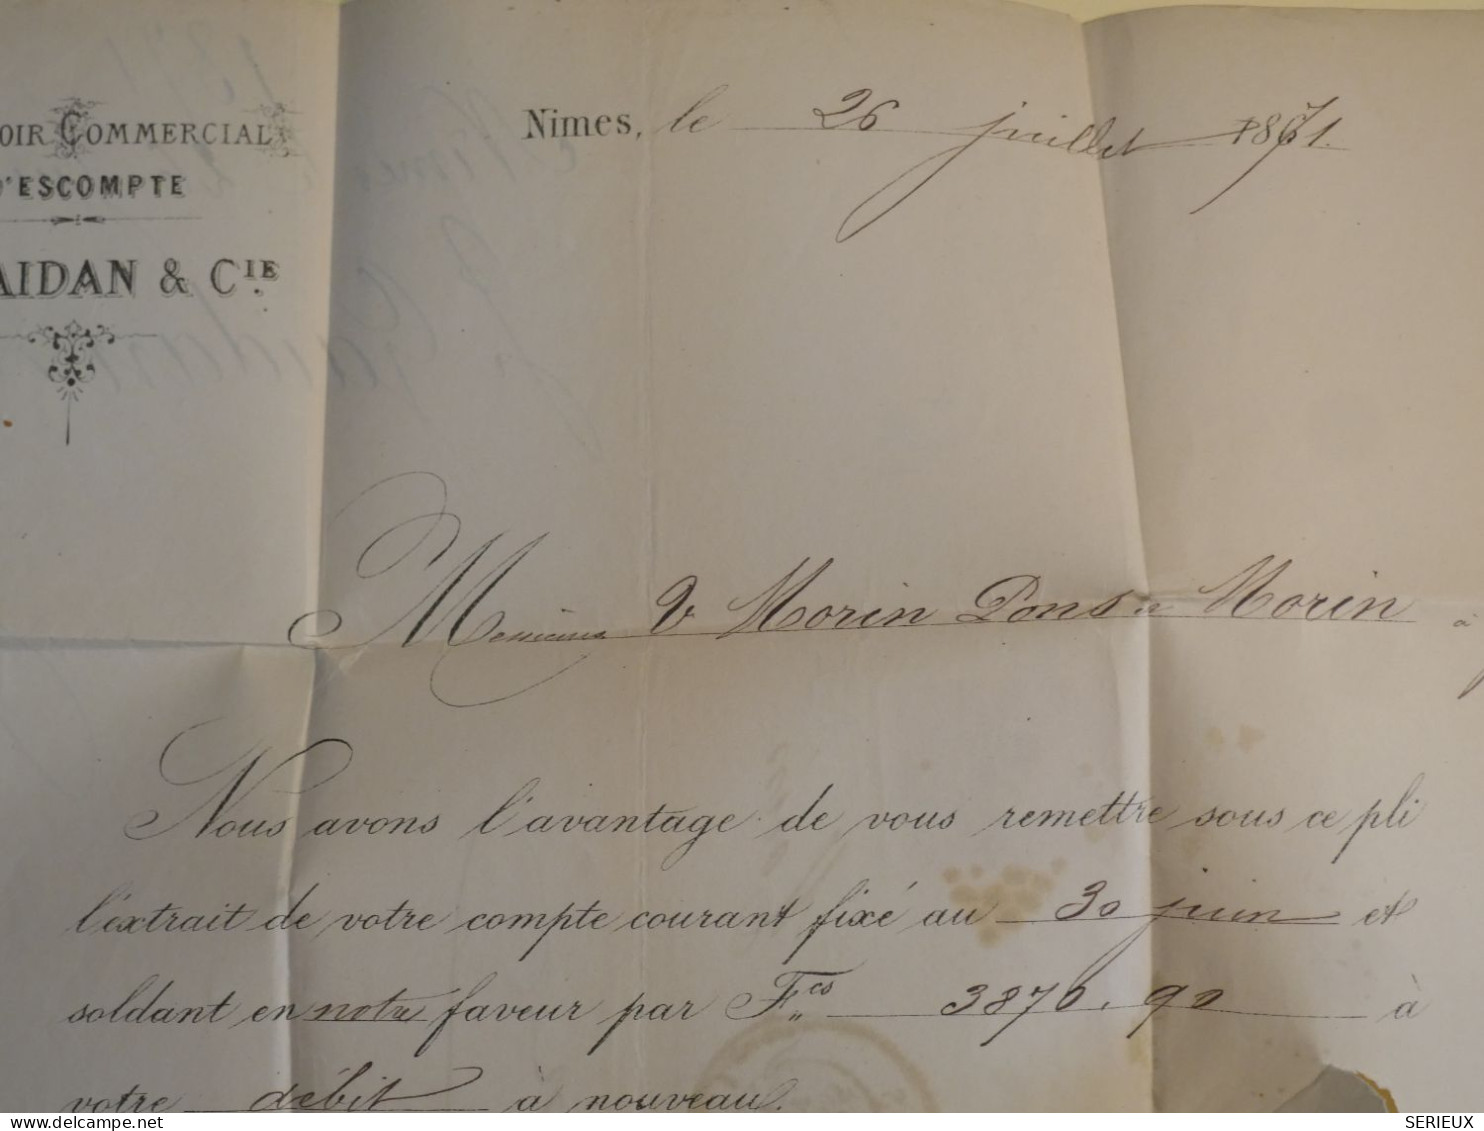 OIR COMMERCIAL
D'ESCOMPTE
AIDAN & CIE
Nimes, le 26 juillet 1871.
Messieurs Vve Morin Pons & Morin à
Nous avons l'avantage de vous remettre sous ce pli
l'extrait de votre compte courant fixé au 30 juin et
soldant en notre faveur par Fcs 3876.90 à
votre débit à nouveau.
SERIEUX